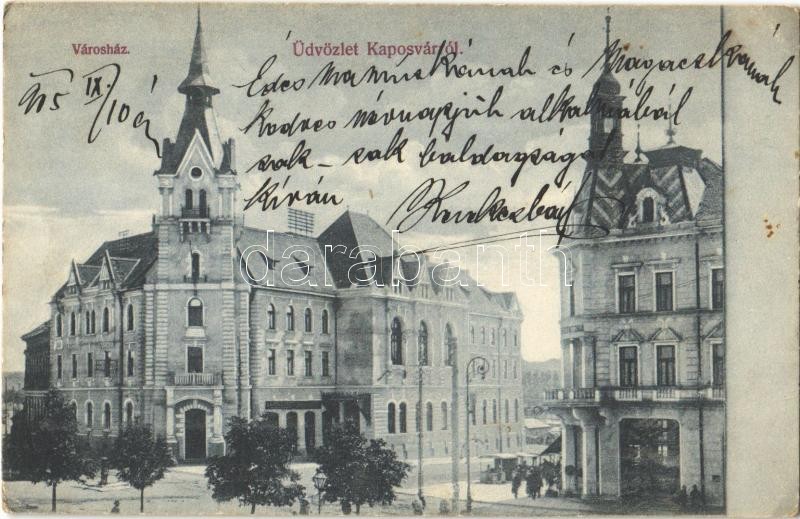 Városház.
Üdvözlet Kaposvárról.
915 IX/10 én
Édes Mamuskának és Magacskának
kedves névnapjuk alkalmából
sok-sok boldogságot
kíván
darabanth